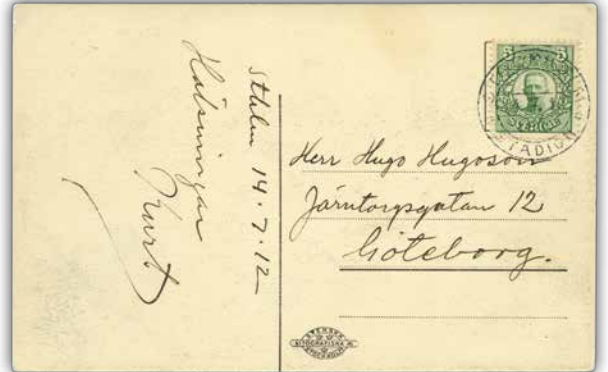 Sthlm 14.7.12
Hälsningar
Kurt
5 5
SVERIGE
STADION
Herr Hugo Hugoson
Järntorgsgatan 12
Göteborg.
SVENSK
LITOGRAFISKA
STOCKHOLM